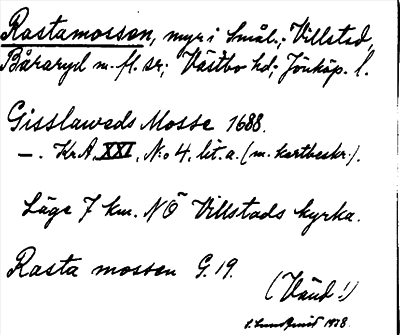 Rastamossen, myr i Smål.; Villstad,
Båraryd m. fl. sr; Västbo hd; Jönköp. l.
Gisslaweds Mosse 1688.
—. Kr.A. XXI, N:o 4, lit. a. (m. kartbeskr.).
Läge 7 km. NÖ Villstads kyrka.
Rasta mossen G. 19.
(Vänd!)
S. Lundqvist 1938.